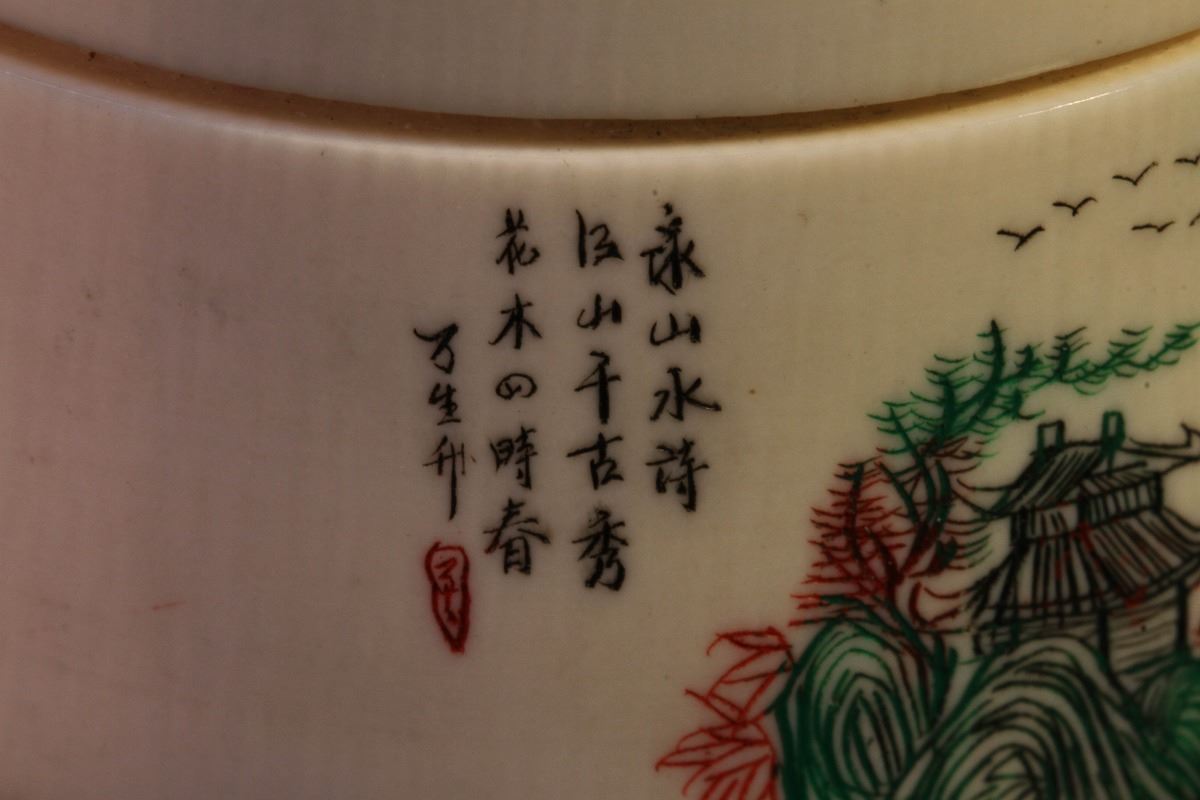 詠山水詩
江山千古秀
花木四時春
万生